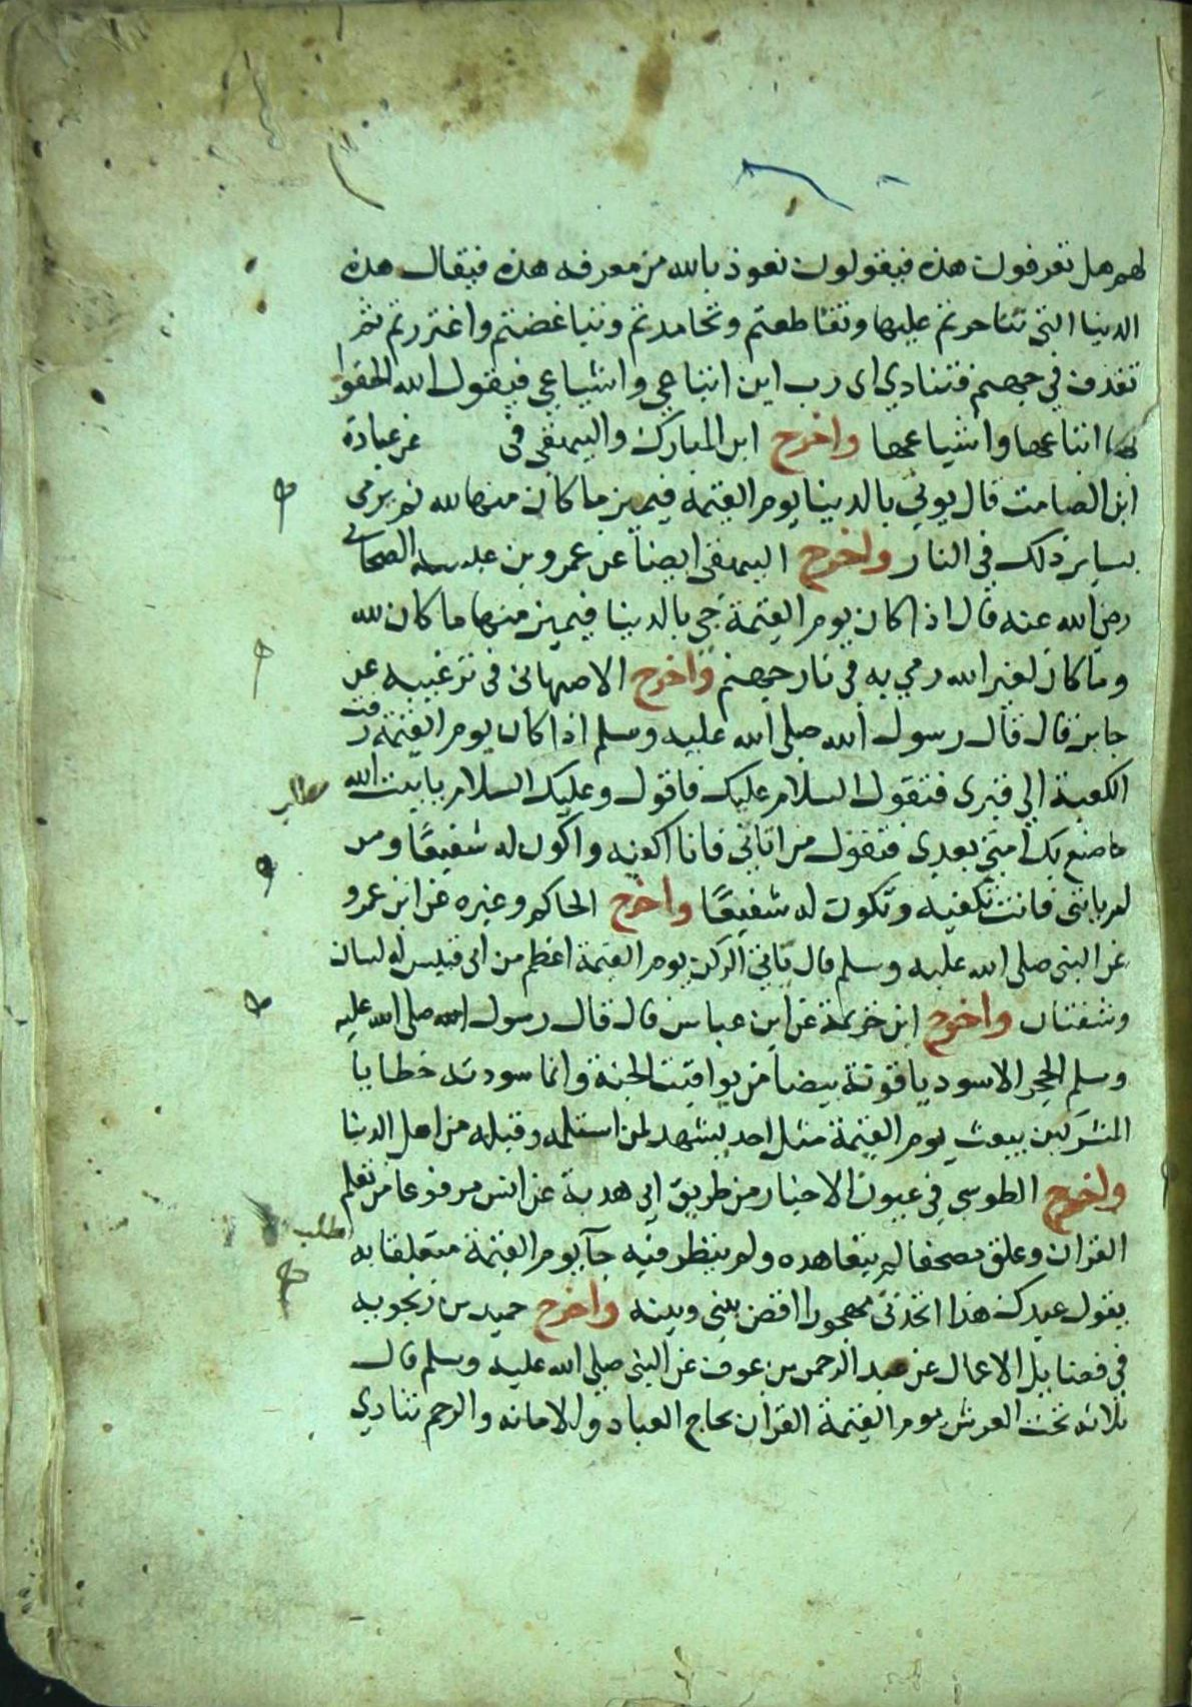 لهم هل تعرفون هذه فيقولون نعوذ بالله من معرفة هذه فيقال هذه
الدنيا التي تناحرتم عليها وتقاطعتم وتحاسدتم وتباغضتم واغتررتم ثم
تقذف في جهنم فتنادي اى رب اين اتباعي واشياعي فيقول الله الحقوا
بها اتباعها واشياعها واخرج ابن المبارك والبيهقى فى عن عبادة
ابن الصامت قال يوتي بالدنيا يوم القيمة فيميز ما كان منها لله ثم يرمى
بساير ذلك في النار واخرج البيهقى ايضا عن عمرو بن عبسه الصحابي
رضى الله عنه قال اذا كان يوم القيمة جي بالدنيا فيميز منها ما كان لله
وما كان لغير الله رمي به في نار جهنم واخرج الاصبهانى فى ترغيبه عن
جابر قال قال رسول الله صلى الله عليه وسلم اذا كان يوم القيمة زفت
الكعبة الي قبرى فتقول السلام عليك فاقول وعليك السلام يا بيت الله
ما صنع بك امتي بعدى فتقول من اتاني فانا اكفيه واكون له شفيعًا ومن
لم ياتنى فانت تكفيه وتكون له شفيعًا واخرج الحاكم وغيره عن ابن عمرو
عن النبى صلى الله عليه وسلم قال ياتي الركن يوم القيمة اعظم من ابى قبيس له لسان
وشفتان واخرج ابن خزيمة عن ابن عباس قال قال رسول الله صلى الله عليه
وسلم الحجر الاسود ياقوتة بيضا من يواقيت الجنة وانما سودته خطايا
المشركين يبعث يوم القيمة مثل احد يشهد لمن استلمه وقبله من اهل الدنيا
واخرج الطوسي في عيون الاخبار من طريق ابي هدبة عن انس مرفوعا من تعلم
القران وعلق مصحفا لم يتعاهده ولم ينظر فيه جآ يوم القيمة متعلقا به
يقول عبدك هذا اتخذنى مهجورا اقض بينى وبينه واخرج حميد بن زنجويه
في فضايل الاعمال عن عبد الرحمن بن عوف عن النبى صلى الله عليه وسلم قال
ثلاثه تحت العرش يوم القيمة القران يحاج العباد والامانه والرحم تنادي
مطلب
مطلب